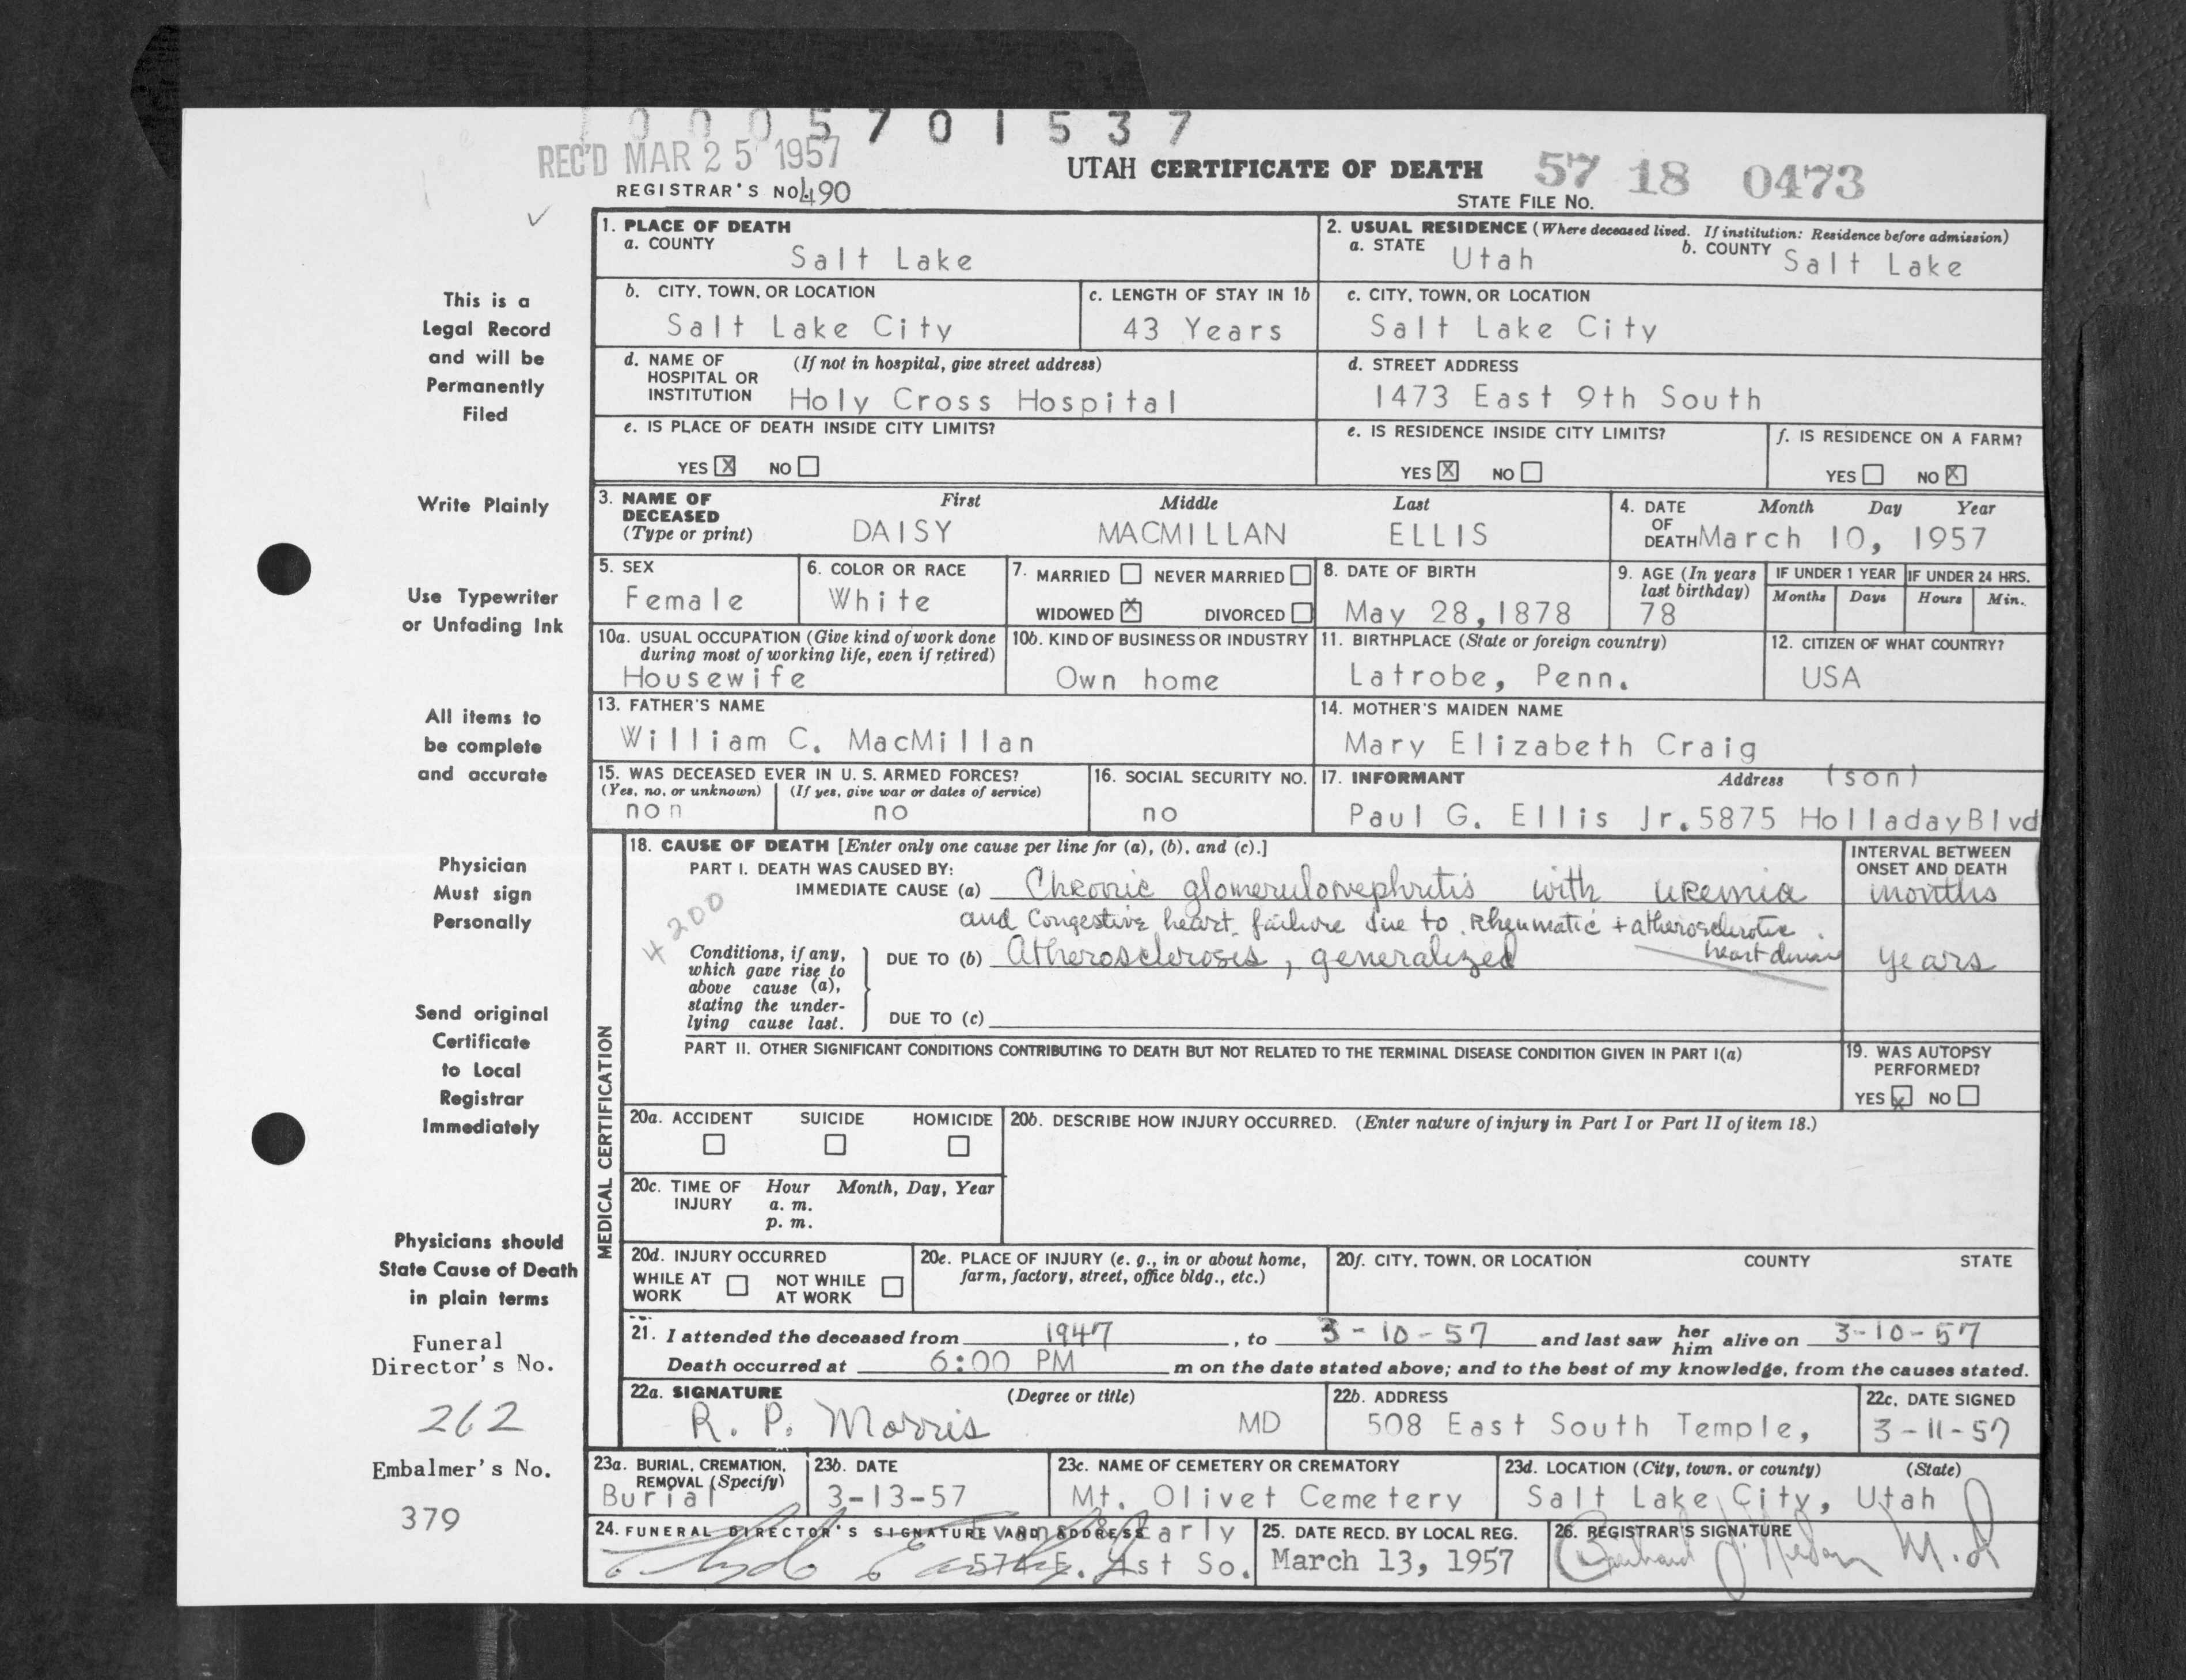 0 0 0 5 7 0 1 5 3 7
REC'D MAR 25 1957
UTAH CERTIFICATE OF DEATH 57 18 0473
REGISTRAR'S NO. 490
STATE FILE NO.
This is a
Legal Record
and will be
Permanently
Filed
Write Plainly
Use Typewriter
or Unfading Ink
All items to
be complete
and accurate
Physician
Must sign
Personally
Send original
Certificate
to Local
Registrar
Immediately
Physicians should
State Cause of Death
in plain terms
Funeral
Director's No.
262
Embalmer's No.
379
1. PLACE OF DEATH
a. COUNTY
Salt Lake
2. USUAL RESIDENCE (Where deceased lived. If institution: Residence before admission)
a. STATE Utah b. COUNTY Salt Lake
b. CITY, TOWN, OR LOCATION
Salt Lake City
c. LENGTH OF STAY IN 1b
43 Years
c. CITY, TOWN, OR LOCATION
Salt Lake City
d. NAME OF (If not in hospital, give street address)
HOSPITAL OR
INSTITUTION Holy Cross Hospital
d. STREET ADDRESS
1473 East 9th South
e. IS PLACE OF DEATH INSIDE CITY LIMITS?
YES X NO
e. IS RESIDENCE INSIDE CITY LIMITS?
YES X NO
f. IS RESIDENCE ON A FARM?
YES NO X
3. NAME OF First Middle Last
DECEASED
(Type or print) DAISY MACMILLAN ELLIS
4. DATE Month Day Year
OF
DEATH March 10, 1957
5. SEX
Female
6. COLOR OR RACE
White
7. MARRIED NEVER MARRIED
WIDOWED X DIVORCED
8. DATE OF BIRTH
May 28, 1878
9. AGE (In years
last birthday)
78
IF UNDER 1 YEAR
Months Days
IF UNDER 24 HRS.
Hours Min.
10a. USUAL OCCUPATION (Give kind of work done
during most of working life, even if retired)
Housewife
10b. KIND OF BUSINESS OR INDUSTRY
Own home
11. BIRTHPLACE (State or foreign country)
Latrobe, Penn.
12. CITIZEN OF WHAT COUNTRY?
USA
13. FATHER'S NAME
William C. MacMillan
14. MOTHER'S MAIDEN NAME
Mary Elizabeth Craig
15. WAS DECEASED EVER IN U. S. ARMED FORCES?
(Yes, no, or unknown) (If yes, give war or dates of service)
non no
16. SOCIAL SECURITY NO.
no
17. INFORMANT Address (son)
Paul G. Ellis Jr. 5875 Holladay Blvd
MEDICAL CERTIFICATION
18. CAUSE OF DEATH [Enter only one cause per line for (a), (b), and (c).]
PART I. DEATH WAS CAUSED BY:
IMMEDIATE CAUSE (a) Chronic glomerulonephritis with uremia
and Congestive heart failure due to Rheumatic + atherosclerotic
heart disease
4200
Conditions, if any,
which gave rise to
above cause (a),
stating the under-
lying cause last.
DUE TO (b) Atherosclerosis, generalized
DUE TO (c)
INTERVAL BETWEEN
ONSET AND DEATH
months
years
PART II. OTHER SIGNIFICANT CONDITIONS CONTRIBUTING TO DEATH BUT NOT RELATED TO THE TERMINAL DISEASE CONDITION GIVEN IN PART I(a)
19. WAS AUTOPSY
PERFORMED?
YES X NO
20a. ACCIDENT SUICIDE HOMICIDE
20b. DESCRIBE HOW INJURY OCCURRED. (Enter nature of injury in Part I or Part II of item 18.)
20c. TIME OF Hour Month, Day, Year
INJURY a. m.
p. m.
20d. INJURY OCCURRED
WHILE AT NOT WHILE
WORK AT WORK
20e. PLACE OF INJURY (e. g., in or about home,
farm, factory, street, office bldg., etc.)
20f. CITY, TOWN, OR LOCATION COUNTY STATE
21. I attended the deceased from 1947, to 3-10-57 and last saw her him alive on 3-10-57
Death occurred at 6:00 PM m on the date stated above; and to the best of my knowledge, from the causes stated.
22a. SIGNATURE (Degree or title)
R. P. Morris MD
22b. ADDRESS
508 East South Temple,
22c. DATE SIGNED
3-11-57
23a. BURIAL, CREMATION,
REMOVAL (Specify)
Burial
23b. DATE
3-13-57
23c. NAME OF CEMETERY OR CREMATORY
Mt. Olivet Cemetery
23d. LOCATION (City, town, or county) (State)
Salt Lake City, Utah
24. FUNERAL DIRECTOR'S SIGNATURE AND ADDRESS
Evans & Early
574 E. 1st So.
25. DATE RECD. BY LOCAL REG.
March 13, 1957
26. REGISTRAR'S SIGNATURE
M.D